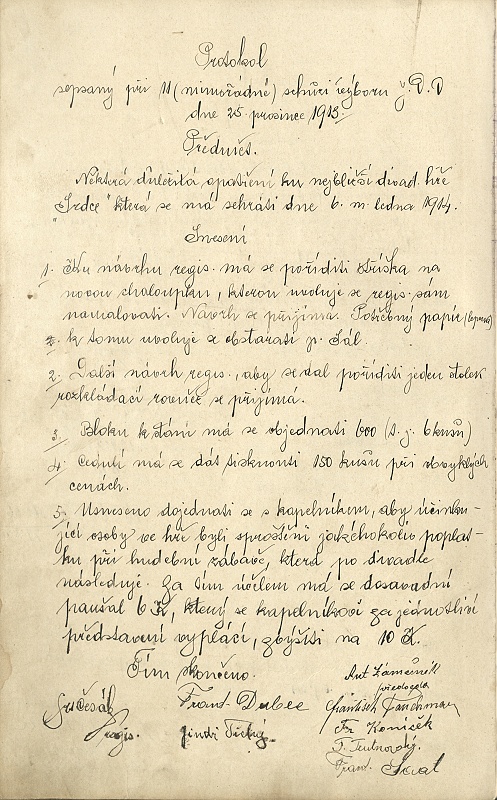 Protokol
sepsaný při 11 (mimořádné) schůzi výboru j. D. O
dne 25 prosince 1913.
Předmět.
Některá důležitá opatření ku nejbližší divad. hře
"Srdce" která se má sehráti dne 6. m. ledna 1914.
Snesení
1. Ku návrhu regis. má se poříditi stříška na
novou chaloupku, kterou uvoluje se regis. sám
namalovati. Návrh se přijímá. Potřebný papír
k tomu uvoluje se obstarati p. Sál.
2. Další návrh regis., aby se dal poříditi jeden stolek
rozkládací rovněž se přijímá.
3. Bloku k stání má se objednati 600 (t. j. 6 kusů)
4. Cedulí má se dát tisknouti 150 kusů při obvyklých
cenách.
5. Usneseno dojednati se s kapelníkem, aby účinku-
jící osoby ve hře byli sproštěni jakéhokoliv poplat-
ku při hudební zábavě, která po divadle
následuje. Za tím účelem má se dosavadní
paušal 6 K, který se kapelníkovi za jednotlivé
představení vyplácí, zvýšiti na 10 K.
Tím skončeno.
Ant Zámečník
předseda
Frant. Dubec
regis.
Jindř Tichý.
Fr. Koníček
Frant.